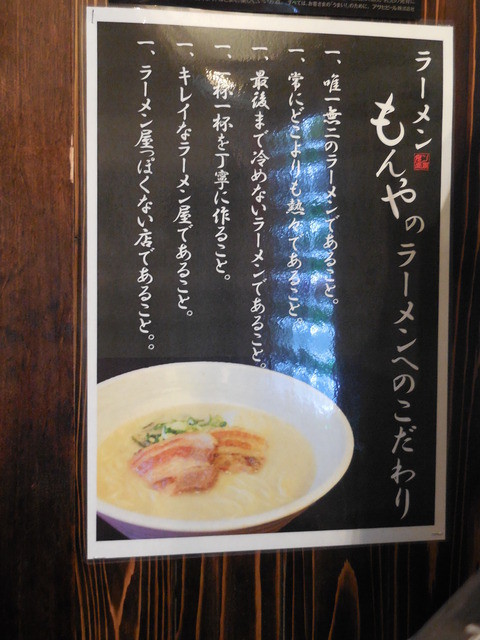 アサヒビール株式会社
ラーメン もんやのラーメンへのこだわり
一、唯一無二のラーメンであること。
一、常にどこよりも熱々であること。
一、最後まで冷めないラーメンであること。
一、一杯一杯を丁寧に作ること。
一、キレイなラーメン屋であること。
一、ラーメン屋っぽくない店であること。。